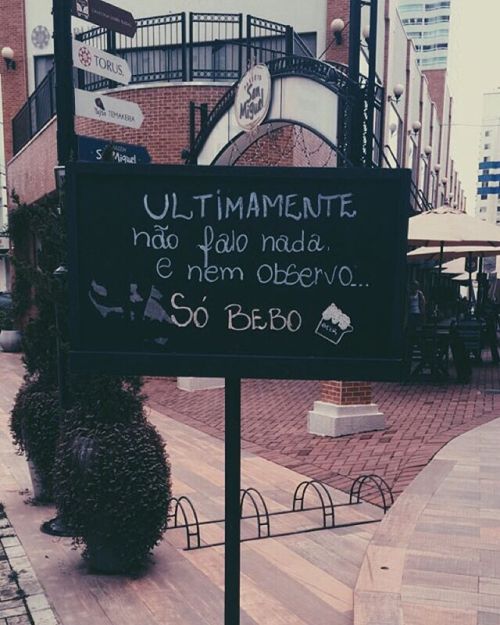 TORUS.
TEMAKERIA
San Miguel
San Miguel
ULTIMAMENTE
não falo nada.
e nem observo...
SÓ BEBO